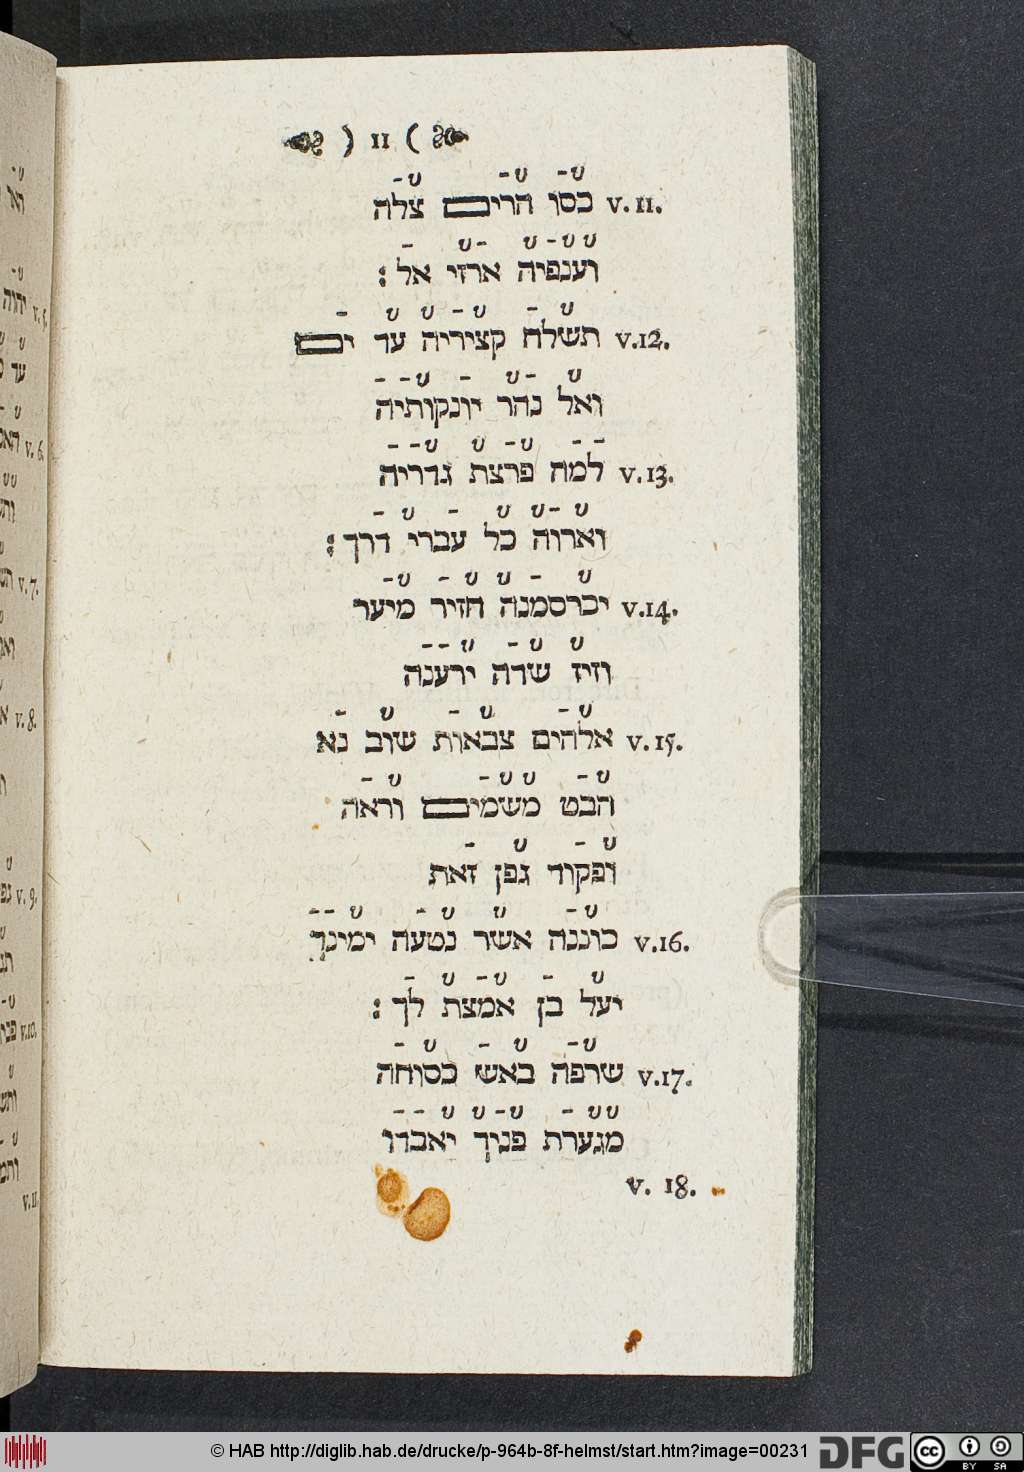 ) 11 (
v. 11. כסו הרים צלה
וענפיה ארזי אל :
v. 12. תשלח קציריה עד ים
ואל נהר יונקותיה
v. 13. למה פרצת גדריה
וארוה כל עברי דרך :
v. 14. יכרסמנה חזיר מיער
וזיז שדה ירענה
v. 15. אלהים צבאות שוב נא
הבט משמים וראה
ופקוד גפן זאת
v. 16. כוננה אשר נטעה ימינך
יעל בן אמצת לך :
v. 17. שרפה באש כסוחה
מגערת פניך יאבדו
v. 18.
v. 5. יהוה
v. 6.
v. 7.
v. 8.
v. 9.
v. 10.
v. 11
© HAB http://diglib.hab.de/drucke/p-964b-8f-helmst/start.htm?image=00231
DFG
cc BY SA